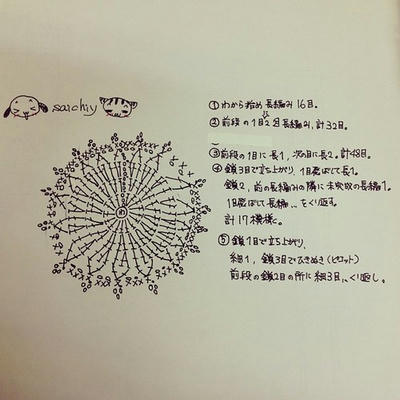 saichiy
① わから始め長編み16目。
② 前段の1目に2目長編み、計32目。
③ 前段の1目に長1、次の目に長2。計48目。
④ 鎖3目で立ち上がり、1目飛ばして長1。
鎖2、前の長編みの隣に未完成の長編1。
1目飛ばして長編、、をくり返す。
計17模様。
⑤ 鎖1目で立ち上がり、
細1、鎖3目でひきぬき(ピコット)
前段の鎖2目の所に細3目、、くり返し。